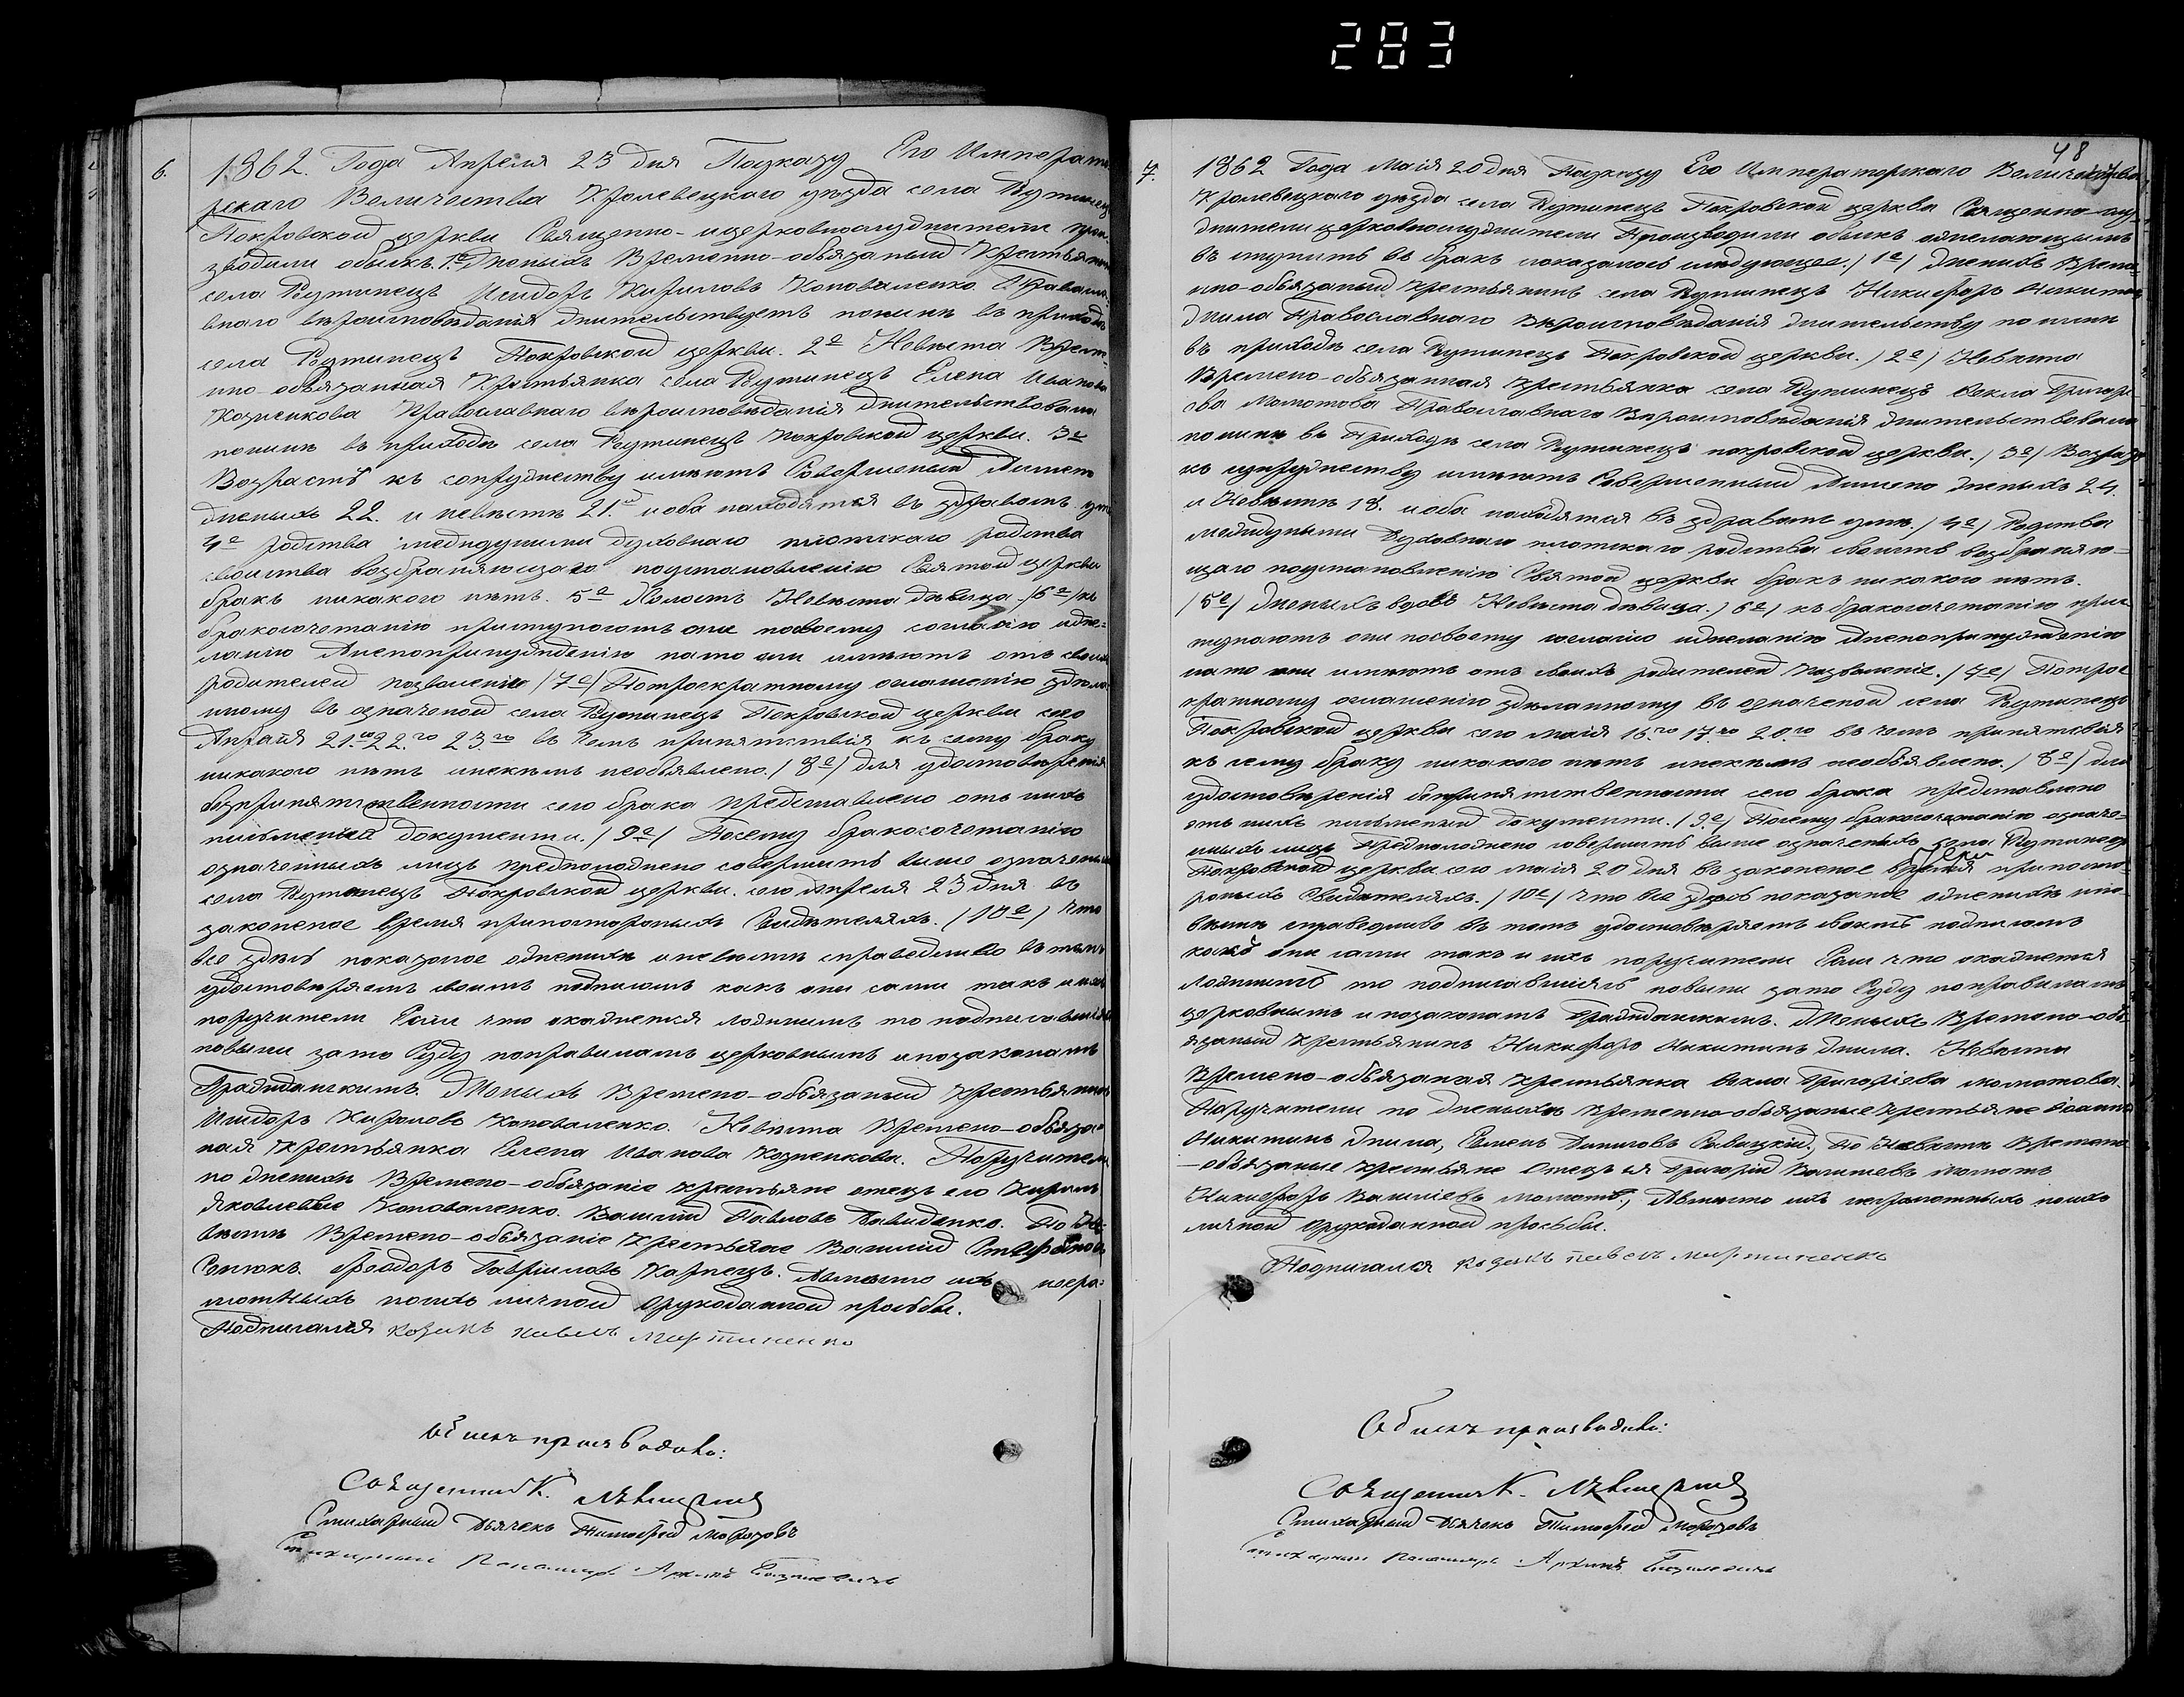 283
6.
1862. Года Апреля 23 дня Поуказу Его Императо
рскаго Величества Кролевецкаго уезда села Рутинец
Покровской церкви Священно-ицерковнослужители прои
зводили обыскъ. 1.е Женыхъ Временно-обьязаный Крестьянин
села Рутинецъ Исидоръ Кириловъ Коноваленко Правосла-
внаго вероисповѣданія жительствуетъ поныне въ приходе
села Рутинецъ Покровской церкви. 2е Невѣста Време
нно-обьязанная Крестьянка села Рутинецъ Елена Иванова
Козненкова Православнаго вероисповѣданія жительствовала
поныне въ приходѣ села Рутинецъ покровской церкви. 3е
Возрастъ къ супружеству имѣютъ Совершеный Имено
женыхъ 22. и невѣсте 21. иоба находятся въ здравомъ уме
4е родства междудуними духовнаго плотскаго родства
своиства возбраняющаго поустановленію Святой церкви
бракъ никакого нѣтъ. 5е Холостъ Невѣста дѣвица /6е/ къ
бракосочетанію приступаютъ они посвоему согласію иже-
ланію Анепопринужденію нато они имѣютъ отъ своих
родителей позволеніе /7е/ Потроекратному оглашенію зделa
нному въ означеной села Рутинецъ Покровской церкви сего
Апреля 21.го 22.го 23.го въ чемъ припятствія къ сему браку
никакого нѣтъ инекемъ необьявлено. /8е/ Для удостовѣренія
безприпятственности сего брака представлено отъ нихъ
письменіи документи. /9е/ Посему бракосочетанію
означенныхъ лицъ предположено совершить выше означены
села Рутинецъ Покровской церкви. сего Апреля 23 дня въ
законеное время припостороныхъ Свидѣтеляхъ. /10е/ что
все здѣсь показоное оженихѣ иневѣсте справедливо въ томъ
удостовѣряетъ своимъ подписомъ какъ они сами такъ и ихъ
поручители Если что окажется ложнимъ то подписавшіясъ
повыни зато Суду поправиламъ церковнымъ ипозаконамъ
Гражданскимъ. Женыхъ Времено-обьязаный Крестьянинъ
Исидоръ Кириловъ Коноваленко. Невѣста Времено-обьяза
ная Крестьянка Елена Иванова Козненкова. Поручители
по женихѣ Времено-обьязаніе крестьяне отецъ его Кирилъ
Яковлевъ Коноваленко. Василій Павловъ Давиденко. По Не
вѣсте Времено-обьязаніе Крестьяне Василій Стефановъ
Феодоръ Гавріиловъ Карпецъ. Авмѣсто ихъ негра-
мотныхъ поихъ личной Орукоданной просьбы.
Подписался козакъ Павелъ Мартиненко
Обискъ производилъ:
Священникъ
Стихарный Дьячекъ Тимофей Морозовъ
Стихарный Пономарь
48
7.
1862 Года Маія 20 дня Поуказу Его Императорскаго Величества
Кролевецкаго уезда села Рутинецъ Покровской церкви Священно-слу
жители церковнослужители Производили обыскъ ожелающимъ
въ ступить въ бракъ показалось слѣдующее. /1е/ Женихъ Време
нно-обьязаный Крестьянинъ села Рутинецъ Никифоръ Никитинъ
Жила Православнаго Вероисповѣданія жительству поныне
въ приходе села Рутинецъ Покровской церкви. /2е/ Невѣста
Времено-обьязанная крестьянка села Рутинецъ Векла Григорі
ева Молотова Православнаго Вероисповѣданія жительствовала
поныне въ Приходе села Рутинецъ покровской церкви. /3е/ Возрастъ
къ супружеству имѣютъ Совершенный Имено женыхъ 24.
и Невѣсте 18. иоба находятся въ здравомъ уме. /4е/ Родства
междуними Духовнаго плотскаго родства своиств возбраняю-
щаго поустановленію Святой церкви бракъ никакого нѣтъ.
/5е/ Женыхъ вдовъ Невѣста дѣвица. /6е/ къ бракосочетанію прис
тупаютъ они посвоему согласію ижеланію Анепопринужденію
нато они имѣютъ отъ своихъ родителей позволеніе. /7е/ Потрое
кратному оглашенію зделанному въ означеной села Рутинецъ
Покровской церкви сего Маія 13.го 17.го 20.го въ чемъ припятствія
къ сему браку никакого нѣтъ инекемъ необьявлено. /8е/ Для
удостовѣренія безприпятственности сего брака представлено
отъ нихъ письменый документи. /9е/ Посему бракосочетанію означе-
нныхъ лицъ Предположено совершить выше означеныхъ села Рутинецъ
Покровской церкви сего маія 20 дня въ законеное время припосто-
роныхъ Свидетеляхъ. /10е/ что все здесь показаное оженихѣ ине
вѣсте справедливо въ томъ удостовѣряетъ своимъ подписомъ
какъ они сами такъ и ихъ поручители Если что окажется
ложнимъ то подписавшіясъ повыни зато Суду поправиламъ
церковнымъ ипозаконамъ Гражданскимъ. Женыхъ Времено-обь
язаный Крестьянинъ Никифоръ Никитинъ Жила. Невѣста
Времено-обьязаная крестьянка Векла Григоріева молотова.
Поручители по женихѣ Временно-обьязаные крестьяне
Никитинъ Жила, Семенъ Савицкій. По Невѣсте Времено
-обьязаные крестьяне Отецъ ея Григорій Василіевъ Молотъ
Никифоръ Василіевъ молотъ, Авмѣсто ихъ неграмотныхъ поихъ
личной Орукоданной просьбы.
Подписался козакъ Павелъ Мартиненко
Обискъ производилъ:
Священникъ
Стихарный Дьячекъ Тимофей Морозовъ
Стихарный Пономарь